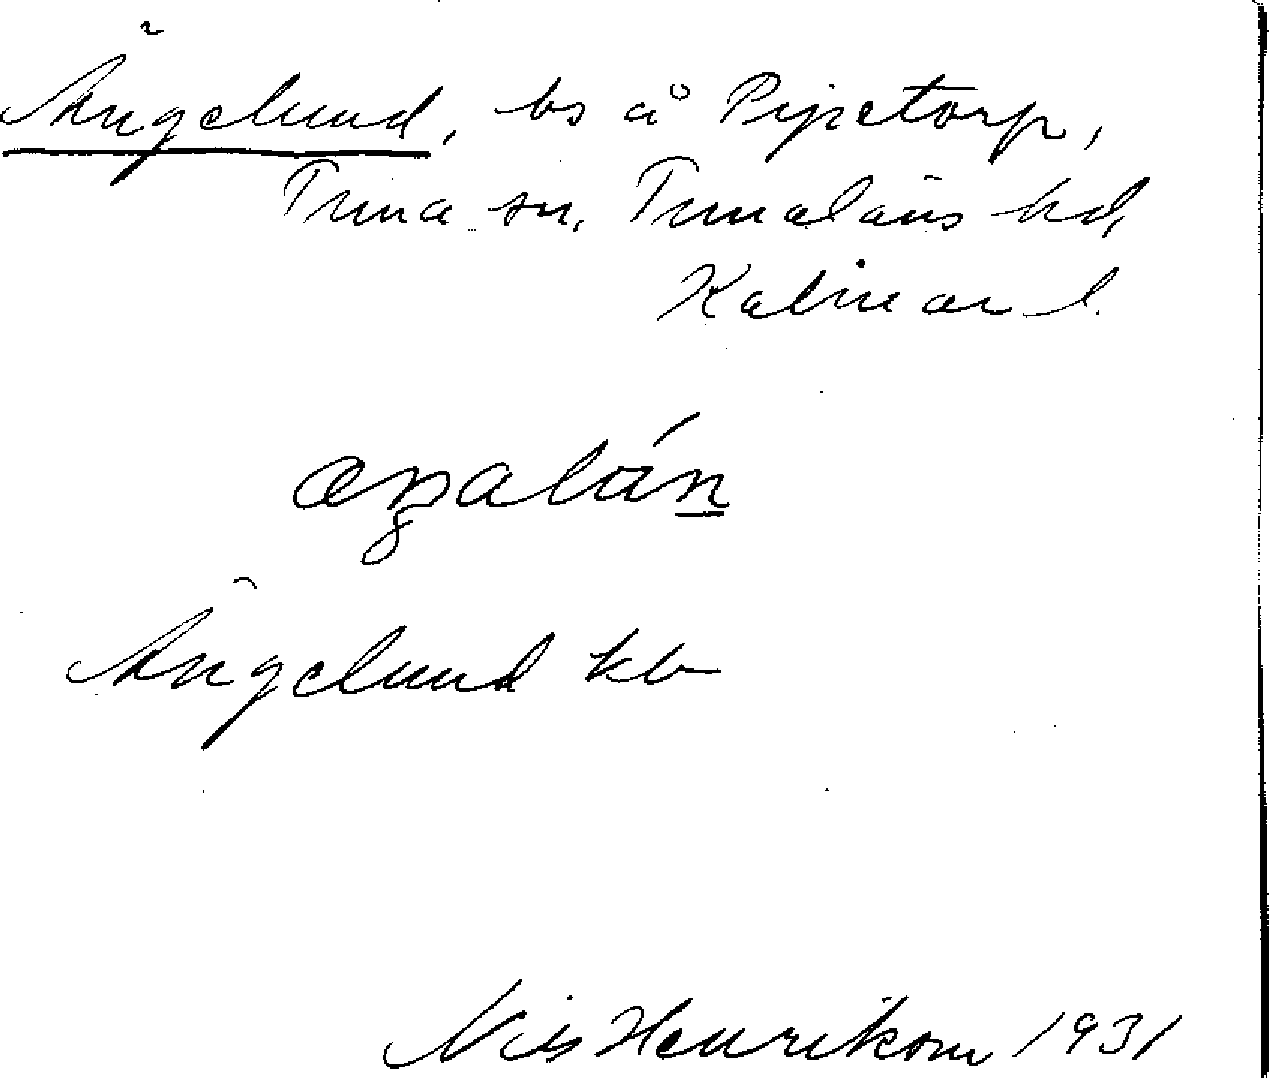 Ängelund, bs å Pipetorp,
Tuna sn, Tunaläns hd,
Kalmar l.
æŋalún
Ängelund kb
Nils Henrikson 1931